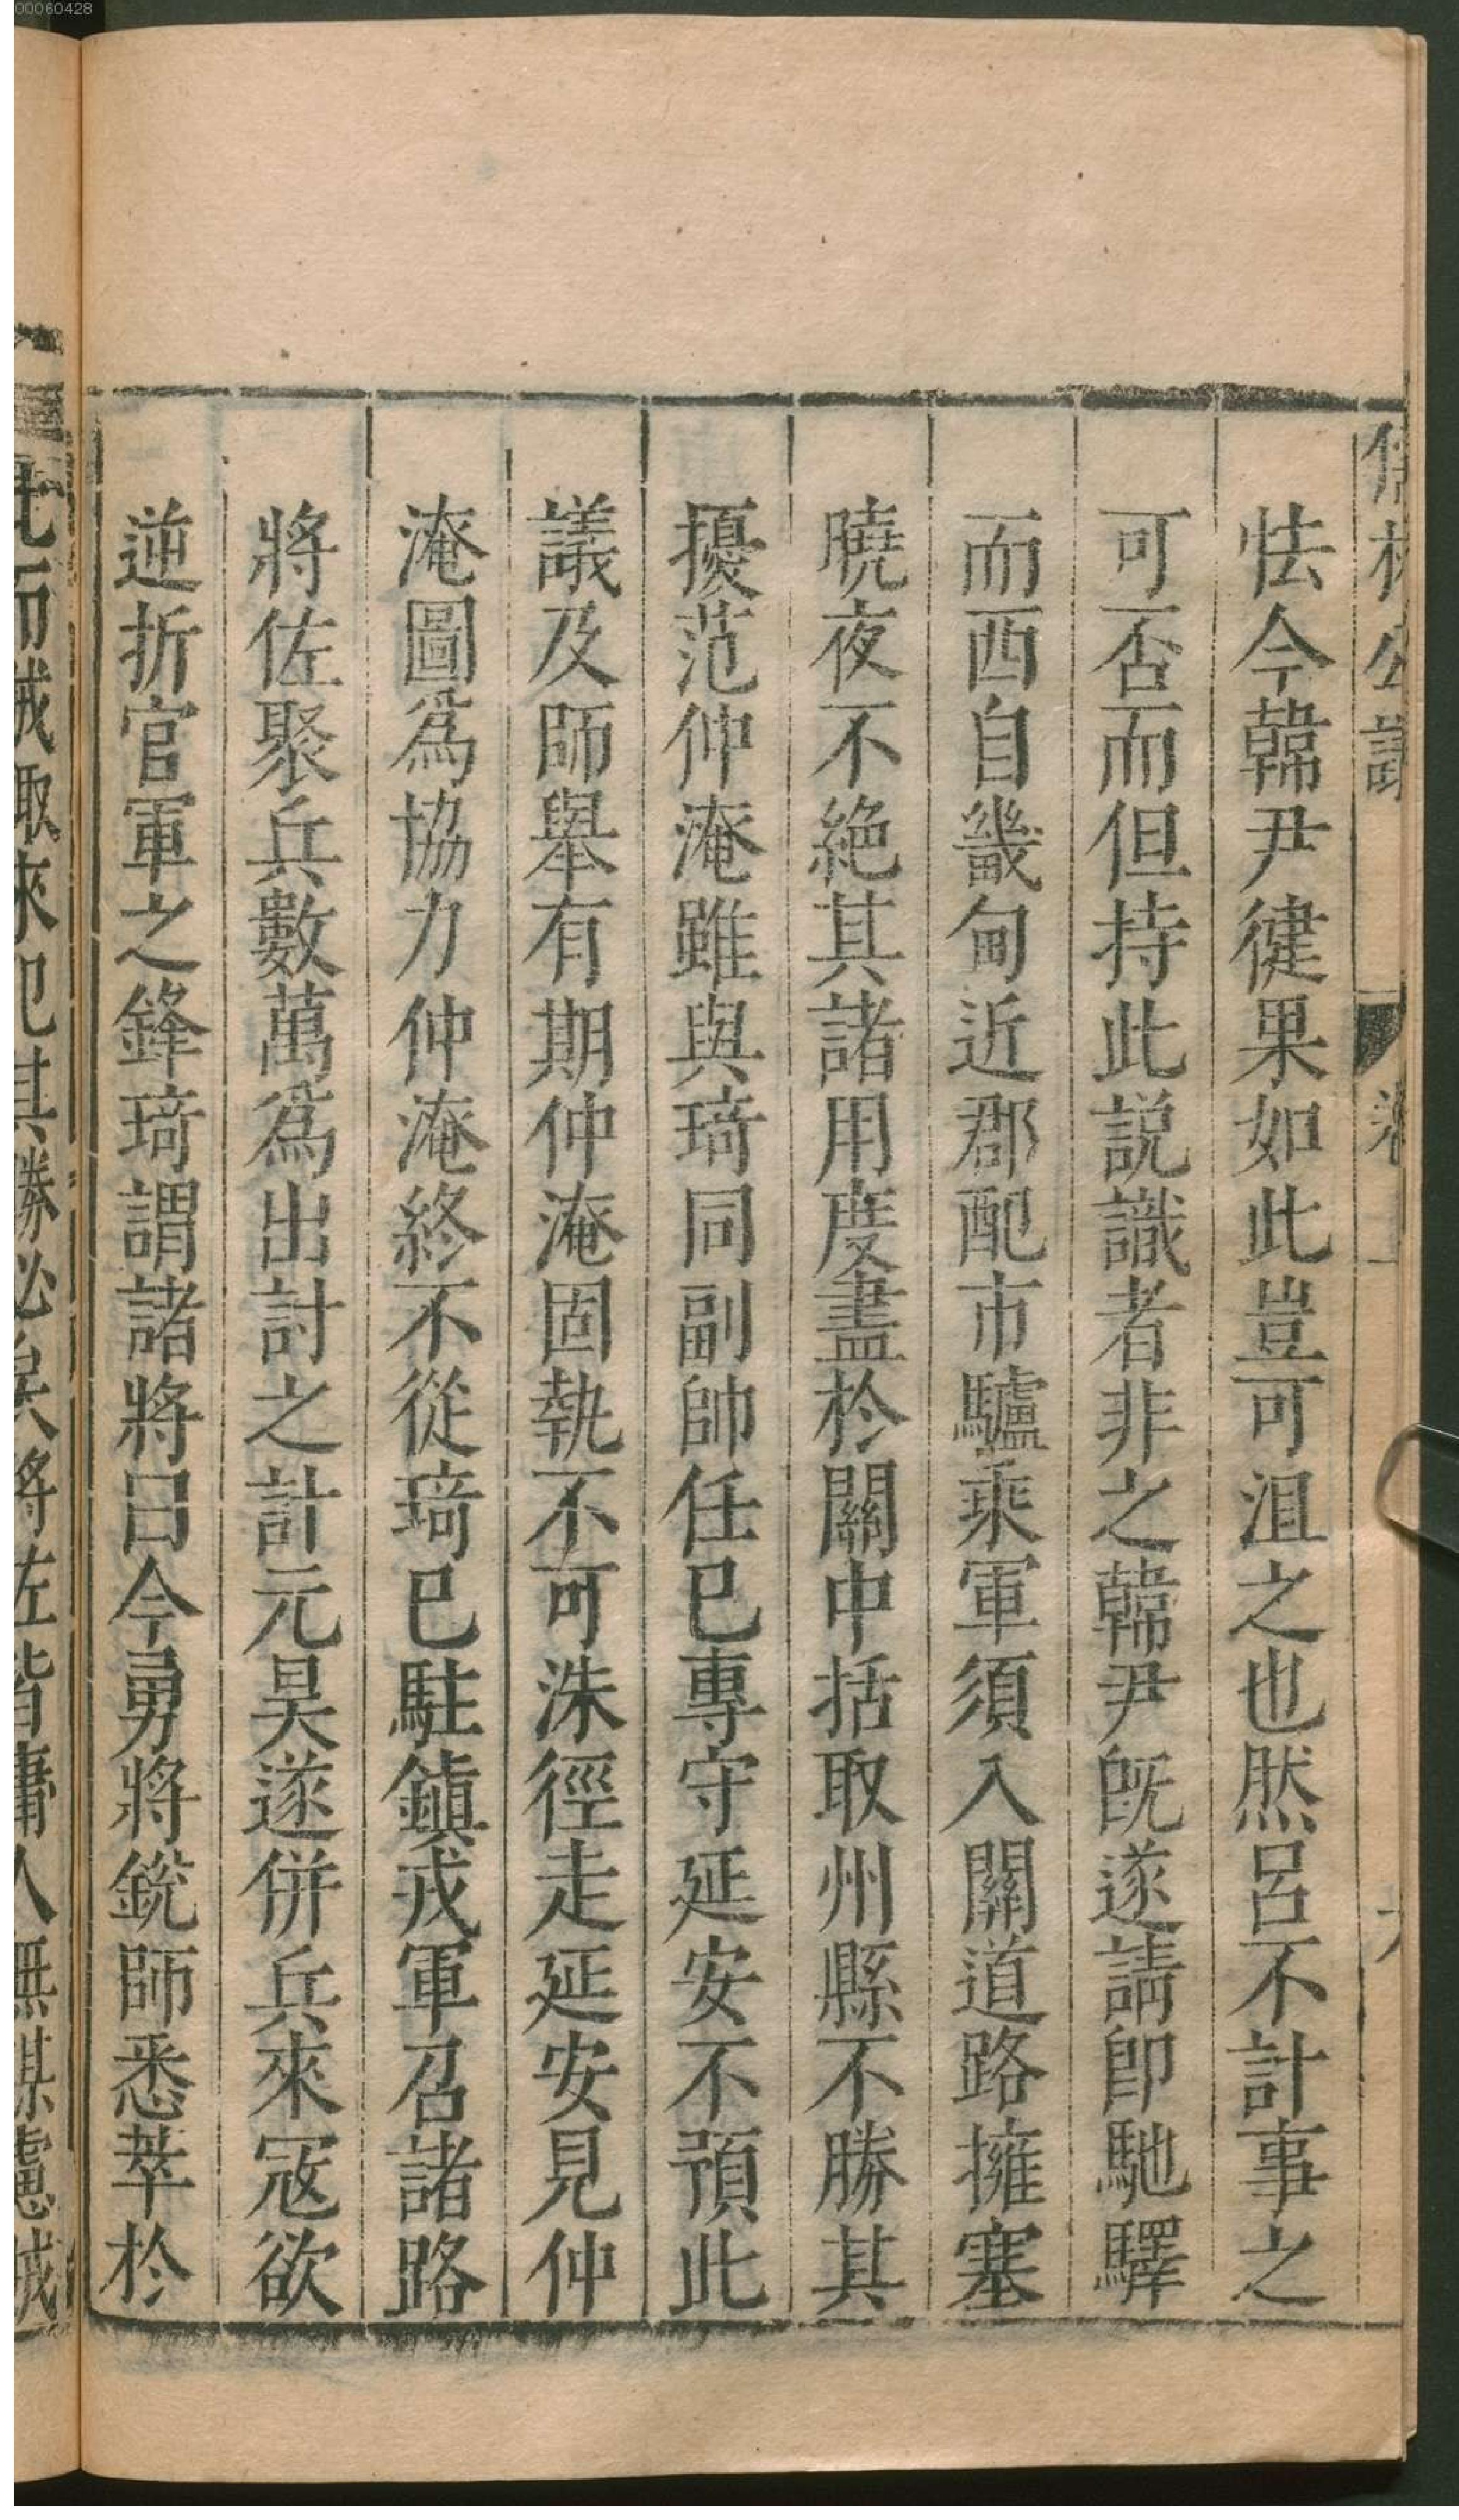 00060428
儒林公議 卷上
怯今韓尹健果如此豈可沮之也然呂不計事之
可否而但持此説識者非之韓尹旣遂請卽馳驛
而西自畿甸近郡配市驢乘軍須入關道路擁塞
曉夜不絶其諸用度盡於關中括取州縣不勝其
擾范仲淹雖與琦同副帥任已專守延安不預此
議及師舉有期仲淹固執不可洙徑走延安見仲
淹圖爲協力仲淹終不從琦已駐鎭戎軍召諸路
將佐聚兵數萬爲出討之計元昊遂併兵來冦欲
逆折官軍之鋒琦謂諸將曰今勇將銳師悉萃於
此而賊敢來犯其勝必矣將佐皆庸人無謀慮賊